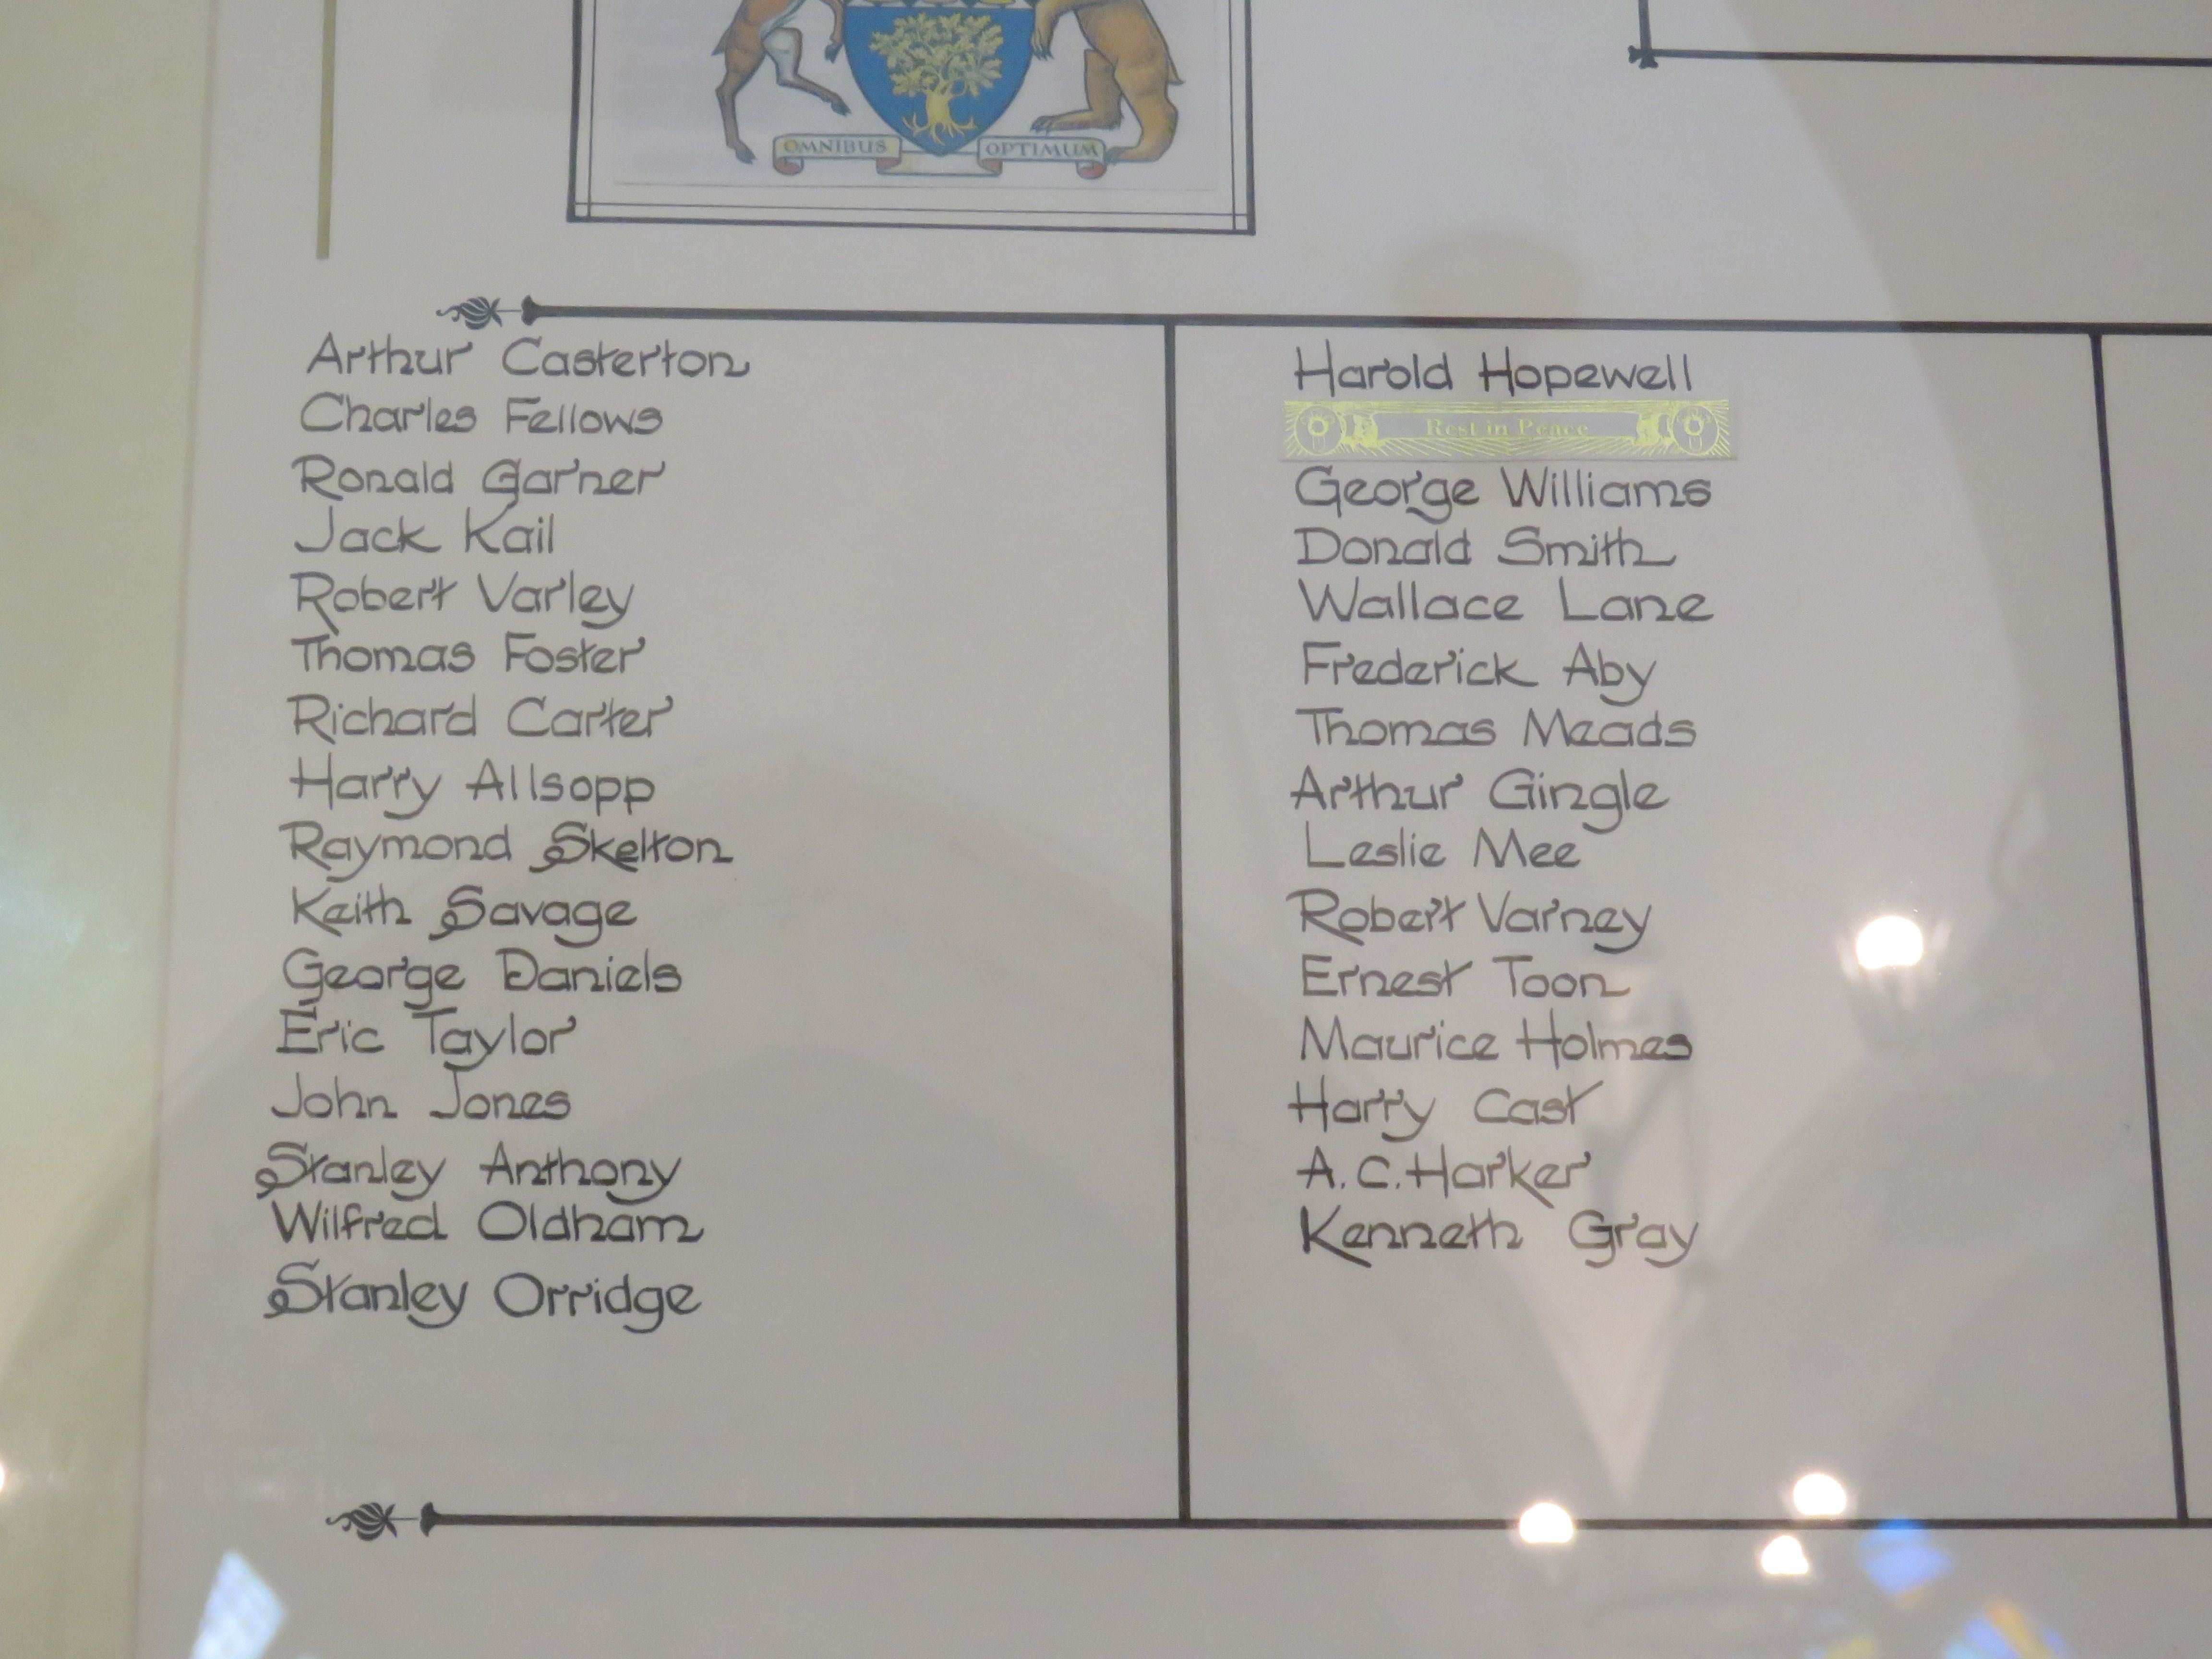 OMNIBUS OPTIMUM
Arthur Casterton
Charles Fellows
Ronald Garner
Jack Kail
Robert Varley
Thomas Foster
Richard Carter
Harry Allsopp
Raymond Skelton
Keith Savage
George Daniels
Eric Taylor
John Jones
Stanley Anthony
Wilfred Oldham
Stanley Orridge
Harold Hopewell
Rest in Peace
George Williams
Donald Smith
Wallace Lane
Frederick Aby
Thomas Meads
Arthur Gingle
Leslie Mee
Robert Varney
Ernest Toon
Maurice Holmes
Harry Cast
A.C.Harker
Kenneth Gray